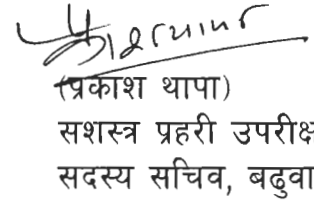 (प्रकाश थापा)
सशस्त्र प्रहरी उपरीक्ष
सदस्य सचिव, बढुवा